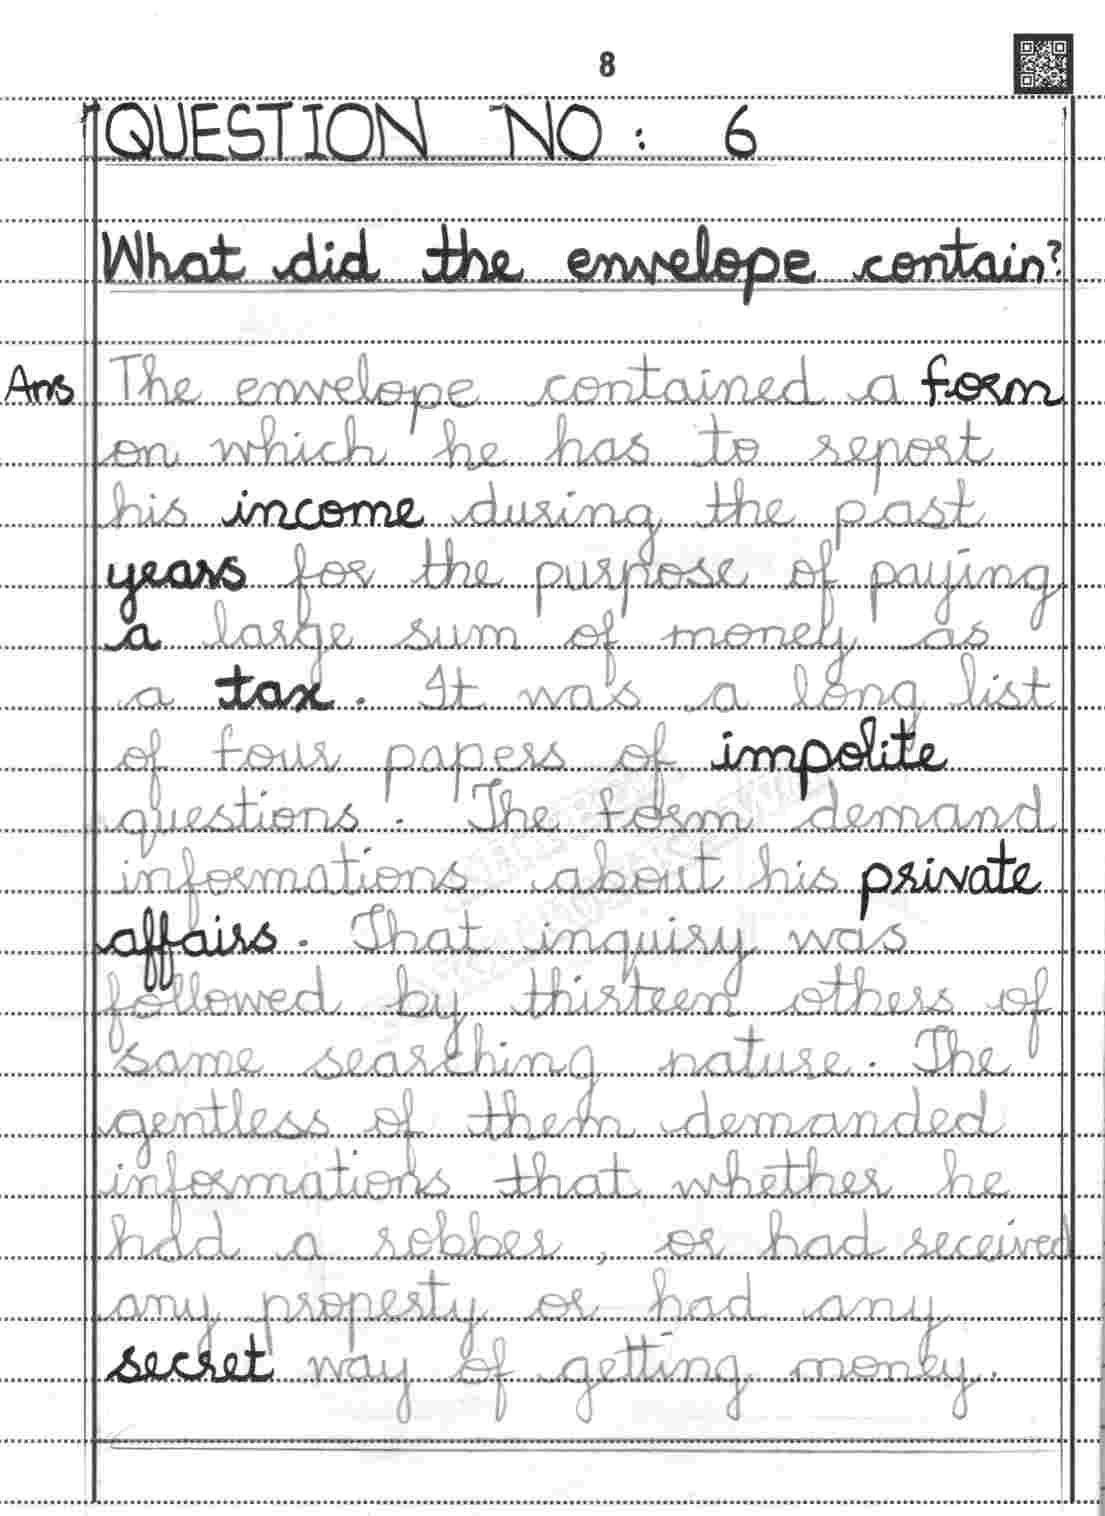 8
QUESTION NO: 6
What did the envelope contain?
Ans The envelope contained a form
on which he has to report
his income during the past
years for the purpose of paying
a large sum of money as
a tax. It was a long list
of four papers of impolite
questions. The form demand
informations about his private
affairs. That inquiry was
followed by thirteen others of
same searching nature. The
gentless of them demanded
informations that whether he
had a robber, or had received
any property or had any
secret way of getting money.